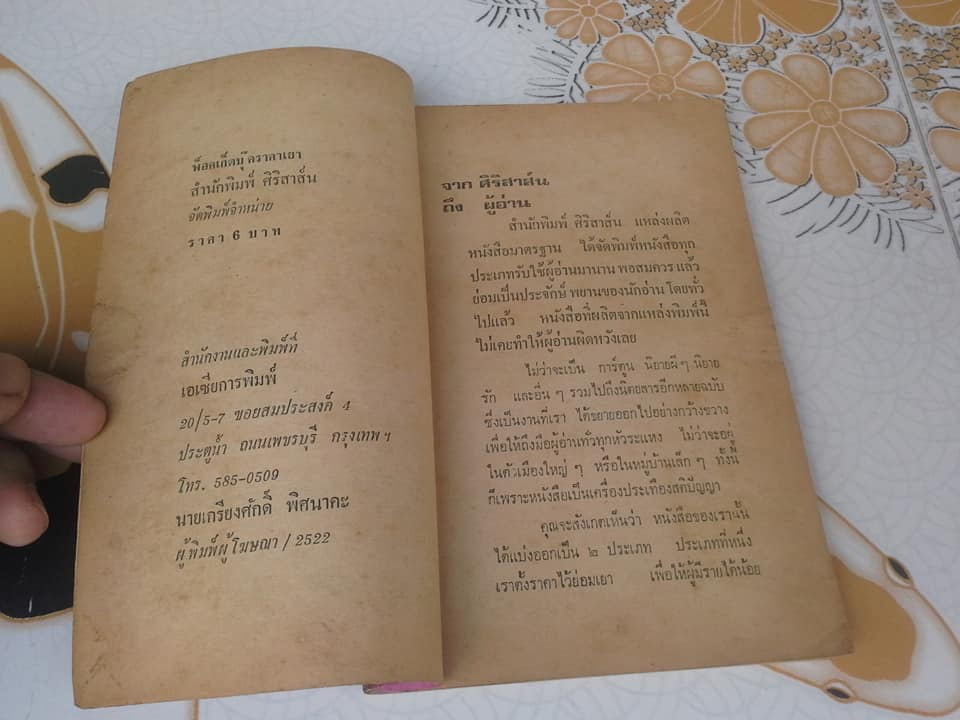 พ็อคเก็ตบุ๊คราคาเยา
สำนักพิมพ์ ศิริสาส์น
จัดพิมพ์จำหน่าย
ราคา 6 บาท
สำนักงานและพิมพ์ที่
เอเซียการพิมพ์
20/5-7 ซอยสมประสงค์ 4
ประตูน้ำ ถนนเพชรบุรี กรุงเทพฯ
โทร. 585-0509
นายเกรียงศักดิ์ พิศนาคะ
ผู้พิมพ์ผู้โฆษณา / 2522
จาก ศิริสาส์น
ถึง ผู้อ่าน
สำนักพิมพ์ ศิริสาส์น แหล่งผลิต
หนังสือมาตรฐาน ได้จัดพิมพ์หนังสือทุก
ประเภทรับใช้ผู้อ่านมานาน พอสมควร แล้ว
ย่อมเป็นประจักษ์ พยานของนักอ่าน โดยทั่ว
ไปแล้ว หนังสือที่ผลิตจากแหล่งพิมพ์นี้
ไม่เคยทำให้ผู้อ่านผิดหวังเลย
ไม่ว่าจะเป็น การ์ตูน นิยายผีๆ นิยาย
รัก และอื่น ๆ รวมไปถึงนิตยสารอีกหลายฉบับ
ซึ่งเป็นงานที่เรา ได้ขยายออกไปอย่างกว้างขวาง
เพื่อให้ถึงมือผู้อ่านทั่วทุกหัวระแหง ไม่ว่าจะอยู่
ในตัวเมืองใหญ่ ๆ หรือในหมู่บ้านเล็ก ๆ ทั้งนี้
ก็เพราะหนังสือเป็นเครื่องประเทืองสติปัญญา
คุณจะสังเกตเห็นว่า หนังสือของเรานั้น
ได้แบ่งออกเป็น ๒ ประเภท ประเภทที่หนึ่ง
เราตั้งราคาไว้ย่อมเยา เพื่อให้ผู้มีรายได้น้อย